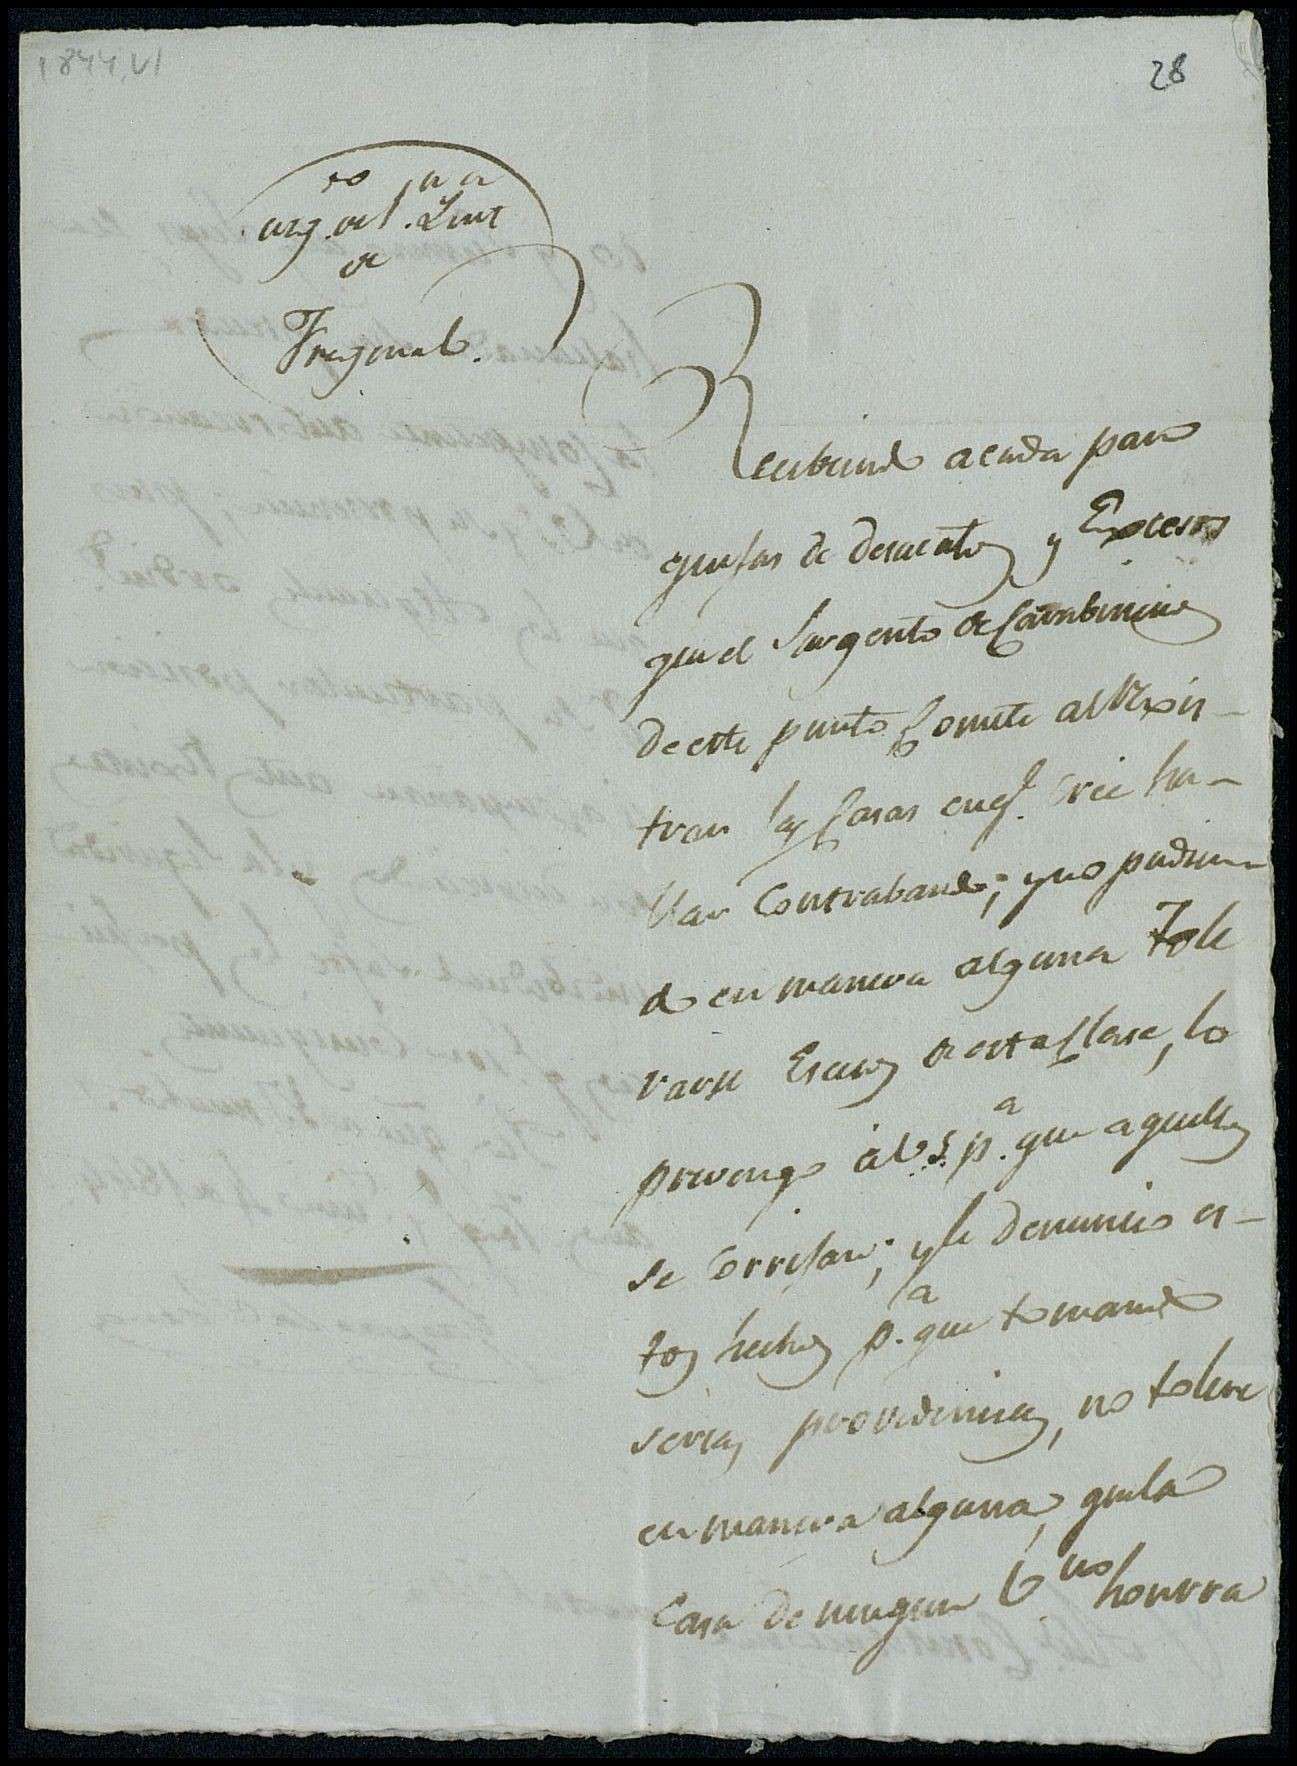 1844, VI
28
Juzg.do de 1.a Ynt.a
de
Fregenal.
Recibiendo acada paso
quejas de desacatos y Excesos
que el Sargento de Carabineros
de este punto Comete al Rexis-
trar las Casas en q.e cree ha-
llar Contrabando; y no pudien-
do en manera alguna Tole
rarse Escesos de esta Clase, lo
prevengo á V.S. p.a que aquellos
se Corrijan; y le denuncio es-
tos hechos p.a que tomando
serias providencias, no tolere
en manera alguna, que la
Casa de ningun V.no honrra